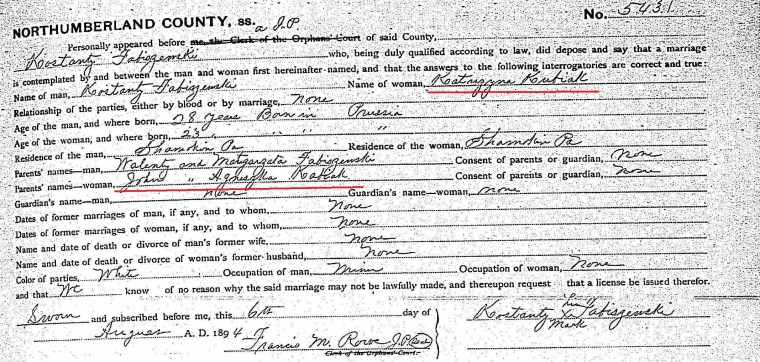 NORTHUMBERLAND COUNTY, ss. No. 5431
a J.P
Personally appeared before me, the Clerk of the Orphans' Court of said County,
Kostanty Fabiszewski who, being duly qualified according to law, did depose and say that a marriage
is contemplated by and between the man and woman first hereinafter named, and that the answers to the following interrogatories are correct and true:
Name of man, Kostanty Fabiszewski Name of woman, Katrizyna Kubiak
Relationship of the parties, either by blood or by marriage, none
Age of the man, and where born, 28 years Born in Prussia
Age of the woman, and where born, 23 " " " "
Residence of the man, Shamokin Pa Residence of the woman, Shamokin Pa
Parents' names—man, Walenty and Margargata Fabiszewski Consent of parents or guardian, none
Parents' names—woman, John " Agneszka Kubiak Consent of parents or guardian, none
Guardian's name—man, none Guardian's name—woman, none
Dates of former marriages of man, if any, and to whom, None
Dates of former marriages of woman, if any, and to whom, None
Name and date of death or divorce of man's former wife, none
Name and date of death or divorce of woman's former husband, none
Color of parties, White Occupation of man, Miner Occupation of woman, None
and that We know of no reason why the said marriage may not be lawfully made, and thereupon request that a license be issued therefor.
Sworn and subscribed before me, this 6th day of
Augus A. D. 1894
Francis M. Rowe J.P. (Seal)
Clerk of the Orphans' Court.
his
Kostanty X Fabiszewski
Mark